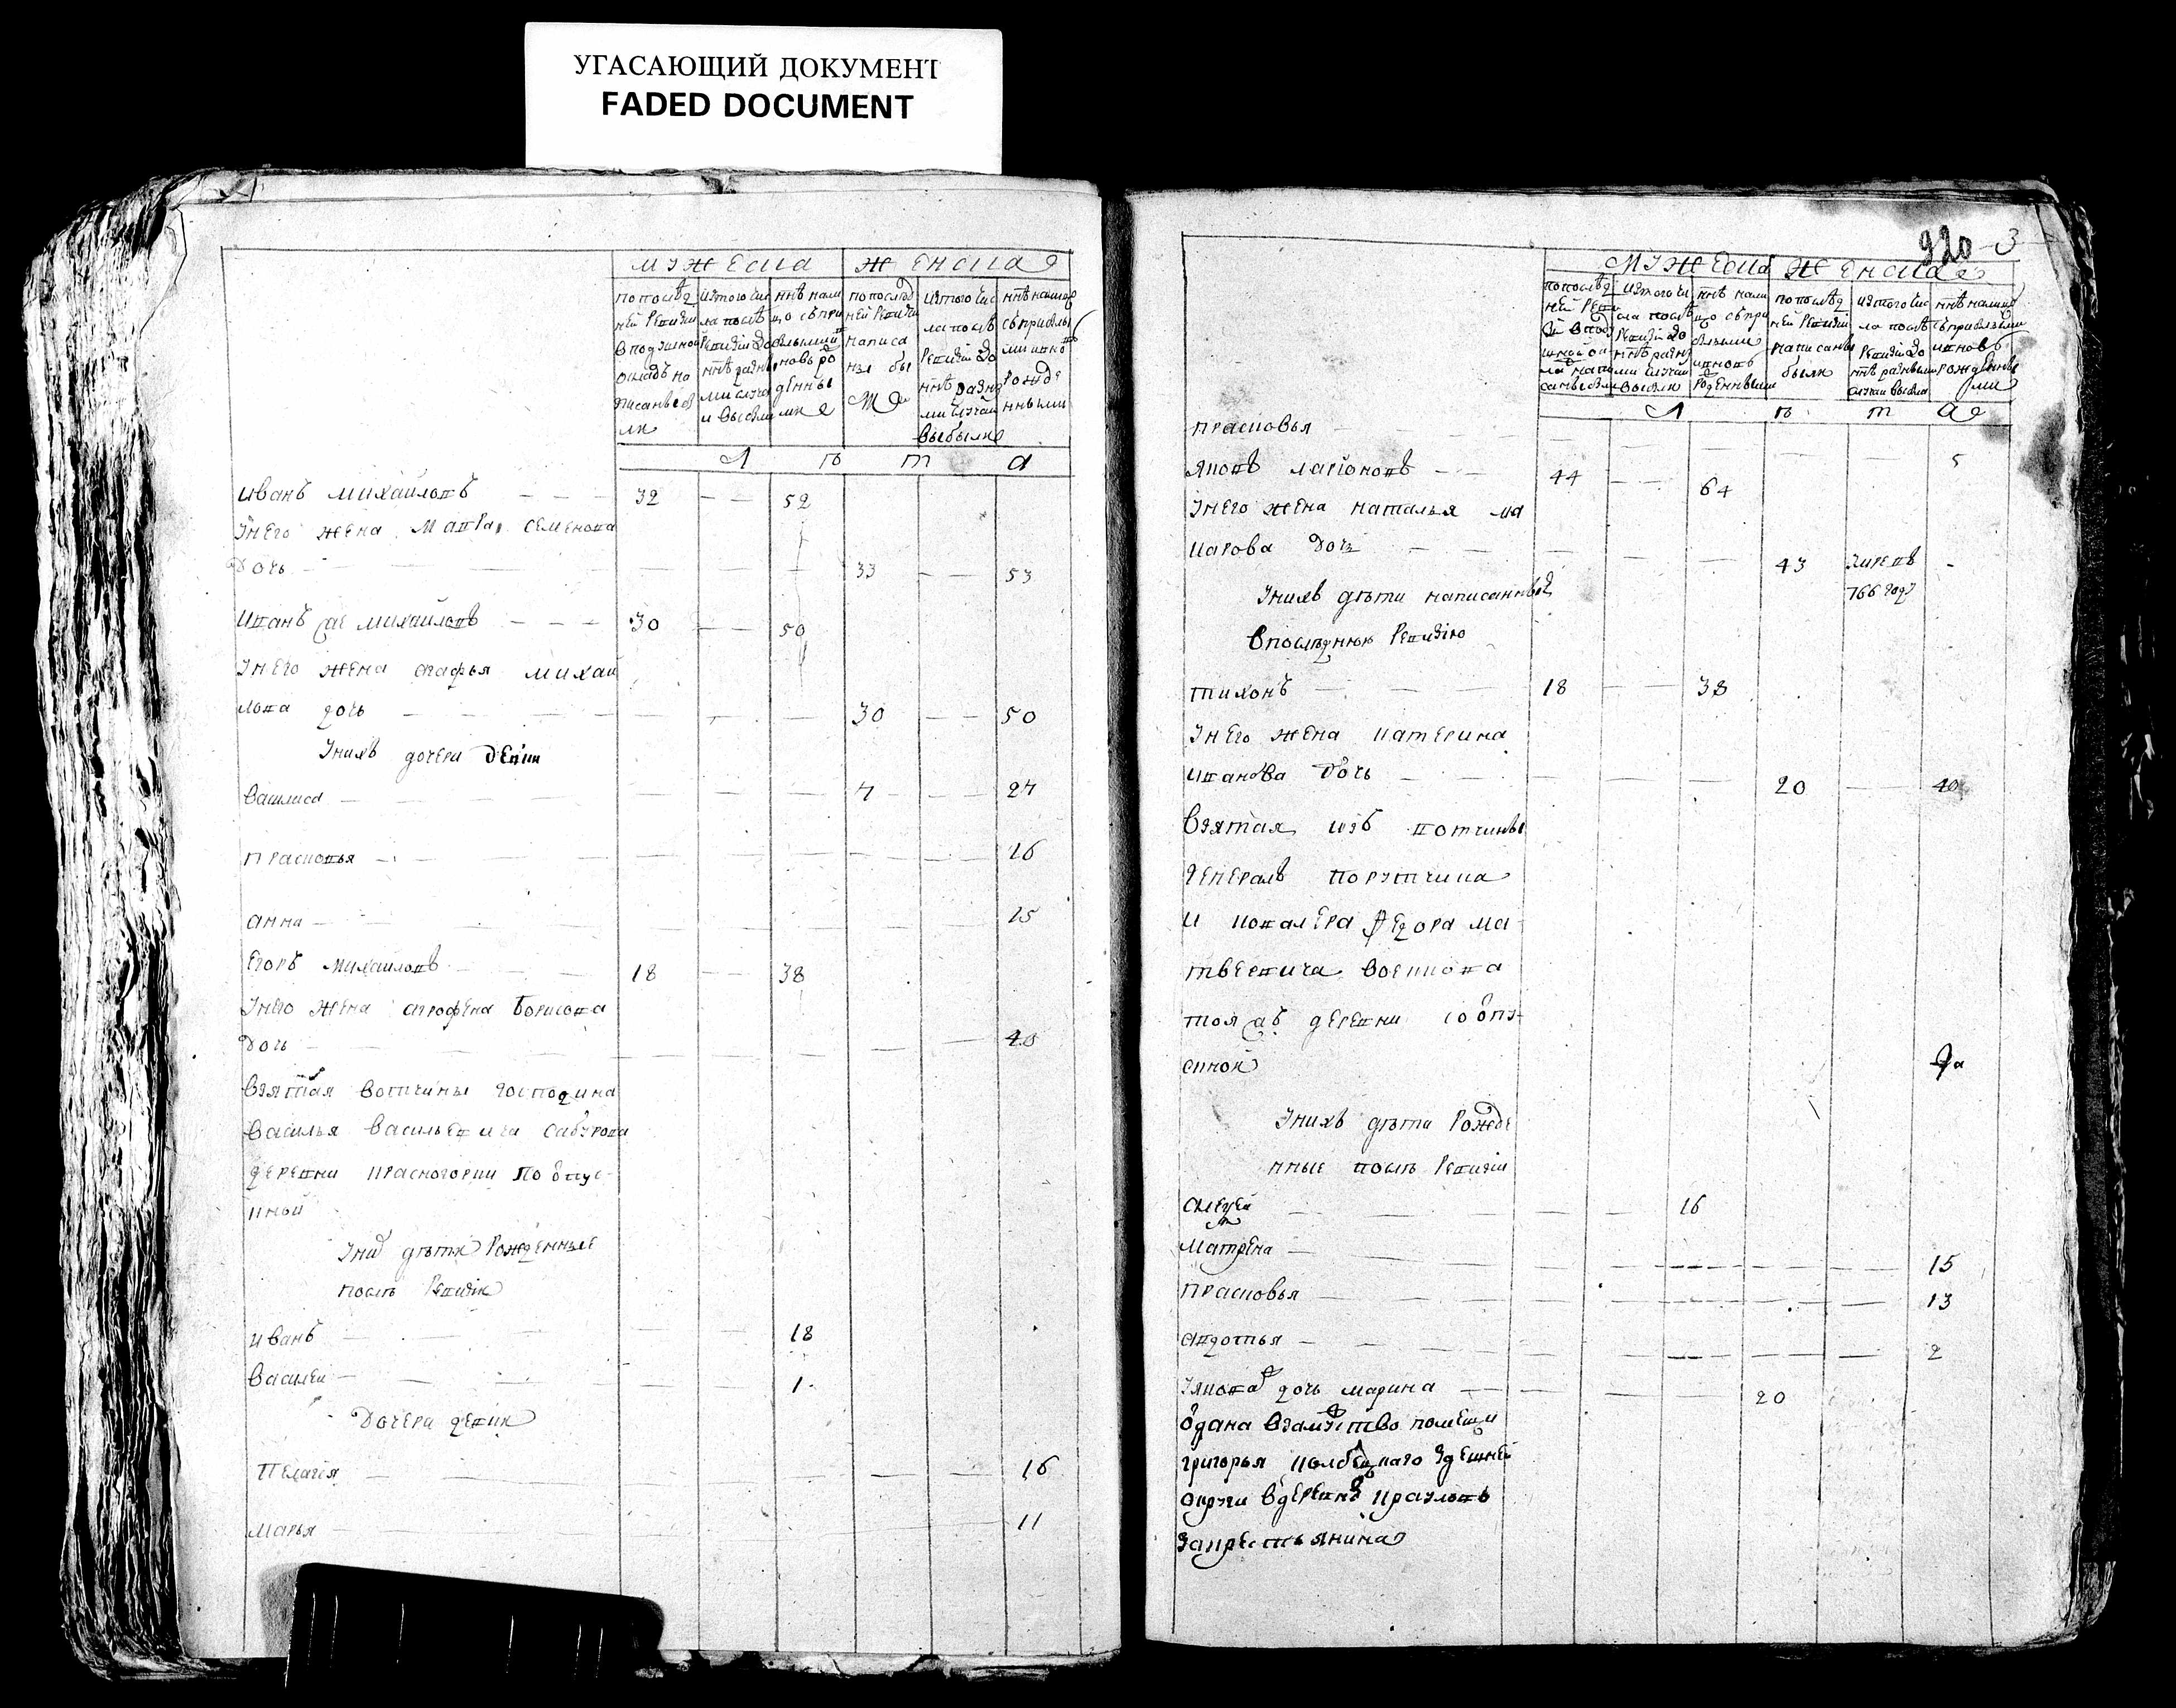 УГАСАЮЩИЙ ДОКУМЕНТ
FADED DOCUMENT
мужеска женска
по послѣд
ней ревизии
в подушной
окладъ на
писаны бы
ли
изтого чис
ла послѣ
ревизіи до
ннѣ разны
ми случа
и выбыли
ннѣ нали
цо съ при
былыми и
новь ро
денны
ми
по послѣд
ней ревизи
написа
ны бы
ли
изтого чис
ла послѣ
ревизіи до
ннѣ разны
ми случаи
выбыли
ннѣ налицо
съ прибылы
ми и вно
рожде
нными
л ѣ т а
иванъ михаиловъ 32 52
у него жена мавра семенова
дочь 33 53
иванъ же михаиловъ 30 50
у него жена агафья михаи
лова дочь 30 50
у нихъ дочери девки
василиса 7 27
прасковья 16
анна 15
егоръ михаиловъ 18 38
у него жена аграфена борисова
дочь 40
взятая вотчины господина
василья васильевича сабурова
деревни красногорки по отпус
кной
у них дѣти рожденные
послѣ ревизіи
иванъ 18
василеи 1
дочери девки
пелагея 16
марья 11
920 3
мужеска женска
по послѣд
ней реви
зіи в поду
шной ок
лад напи
саны были
изтого чи
сла послѣ
ревизіи до
ннѣ разны
ми случаи
выбыли
ннѣ нали
цо съ при
былыми
и вновь
роденными
по послѣд
ней ревизіи
написаны
были
изтого чис
ла послѣ
ревизіи до
ннѣ разными
случаи выбыли
ннѣ налицо
съ прибылыми
и вновь
рожденны
ми
л ѣ т а
прасковья 5
яковъ ларіоновъ 44 64
у него жена наталья ма
карова дочь 43 умре въ
766 году
у нихъ дѣти написанные
в последнюю ревизію
тихонъ 18 38
у него жена катерина
иванова дочь 20 40
взятая изъ вотчины
генералъ порутчика
и ковалера федора ма
твеевича воеикова
тоя жъ деревни со отпу
скной
у нихъ дѣти рожде
нные послѣ ревизіи
алеѯеи 16
матрена 15
прасковья 13
авдотья 2
у якова дочь марина 20
одана взамуство помещи
григорья колбецкаго здешней
округи в деревнѣ краулово
за крестьянина